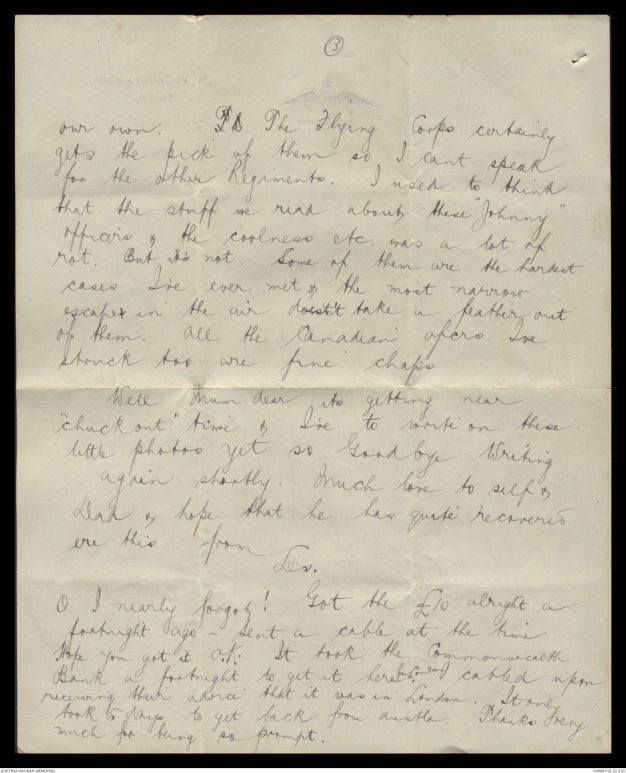 3
our own. The Flying Corps certainly
gets the pick of them so I cant speak
for the other Regiments. I used to think
that the stuff we read about, these "Johnny"
officers & the coolness etc. was a lot of
rot. But it's not. Some of them are the hardest
cases I've ever met & the most narrow
escape in the air doesn't take a feather out
of them. All the Canadian ofcrs I've
struck too are fine chaps
Well Mum dear its getting near
"chuck out" time & I've to write on these
little photos yet so Goodbye Writing
again shortly. Much love to self &
Dad & hope that he has quite recovered
ere this from
Les.
O I nearly forgot! Got the £10 alright a
fortnight ago - sent a cable at the time
Hope you got it O.K. It took the Commonwealth
Bank a fortnight to get it here I cabled upon
receiving their advice that it was in London. It only
took 5 days to get back from austla. Thanks very
much for being so prompt.
AUSTRALIAN WAR MEMORIAL